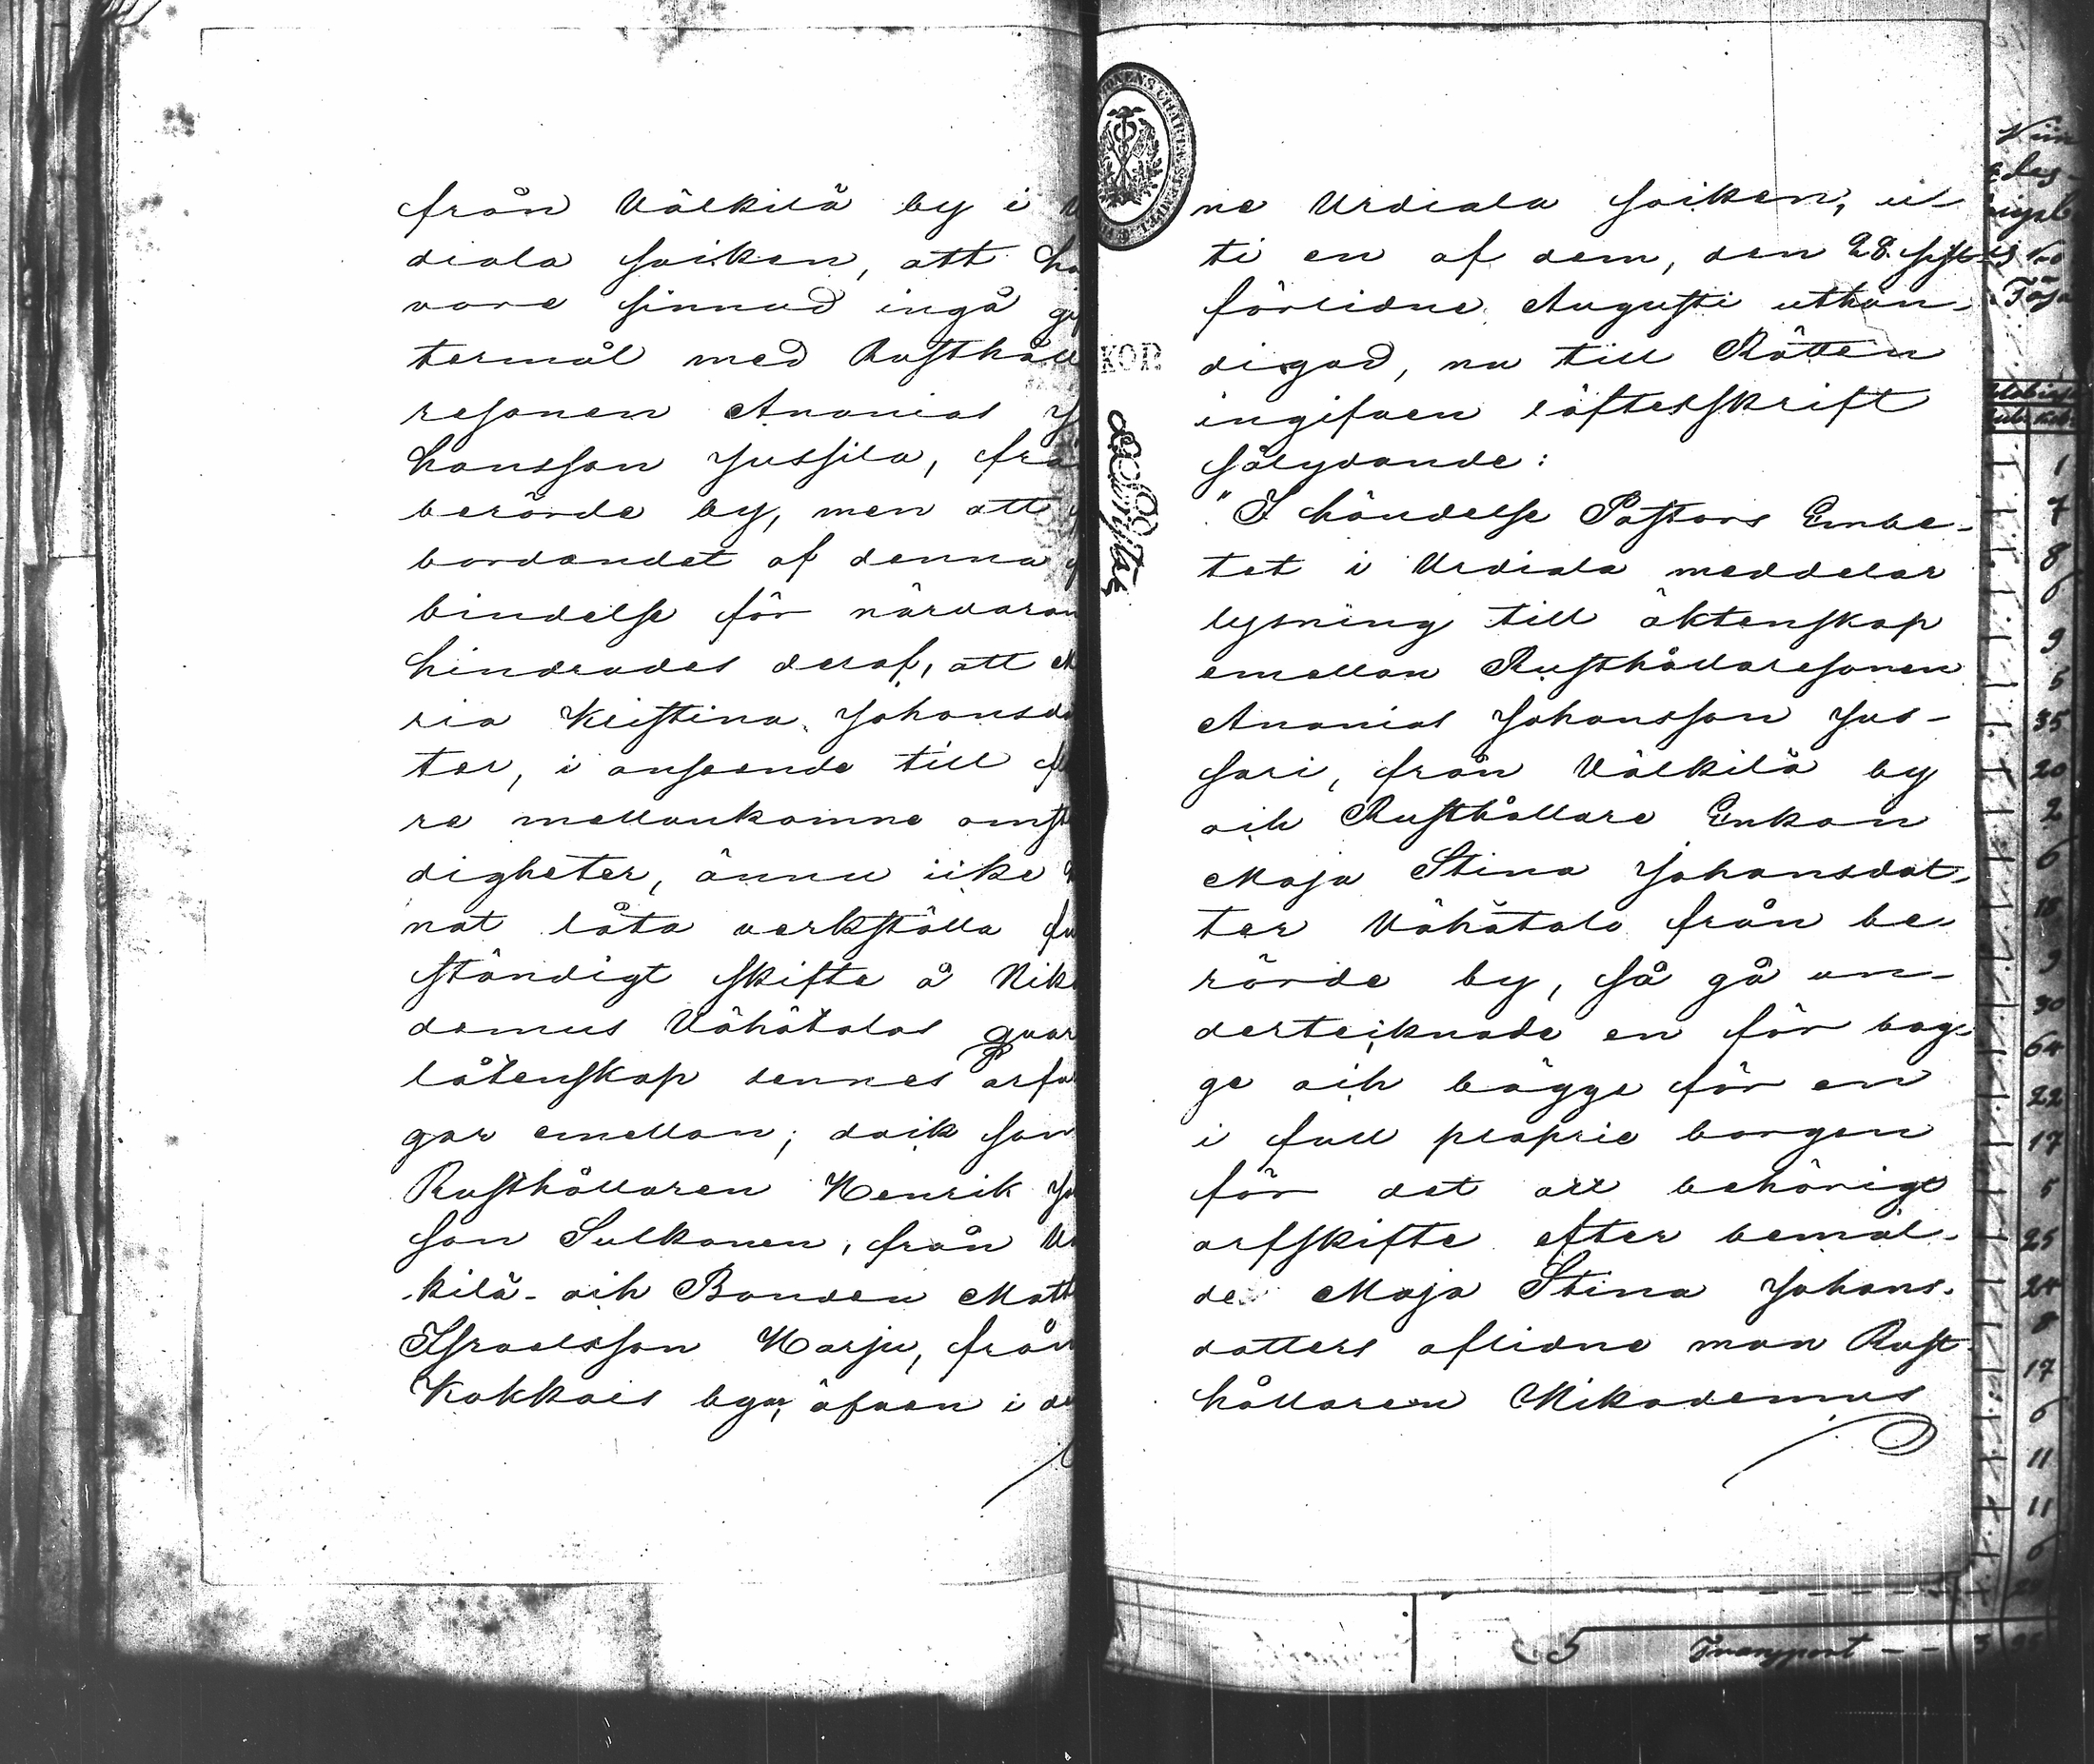 från Välkilä by i
diala socken, att
vore sinnad ingå
termål med Rusthåll
resonen Ananias
hansson Jussila, frå
berörde by, men att
bordandet af denna
bindelse för närvaran
hindrades deraf, att
ria Kristina Johansdo
ter, i anseende till
re mellankomne omst
digheter, ännu icke
nat låta verkställa
ständigt skifte å Nik
demus Vähätalos qvar
låtenskap dennes arfva
gar emellan; dock som
Rusthållaren Henrik
son Sulkanen, från
kilä och Bonden Matt
Israelsson Marju, från
Kokkois byar, äfven i
ne Urdiala socken, u-
ti en af dem, den 28 sist-
förlidne Augusti uthän-
digad, nu till Rätten
ingifven löftesskrift
sålydande:
"I händelse Pastors Embe-
tet i Urdiala meddelar
lysning till äktenskap
emellan Rusthållaresonen
Ananias Johansson Jus-
sari, från Välkilä by
och Rusthållare Enkan
Maja Stina Johansdot-
ter Vähätalo från be-
rörde by, så gå un-
dertecknade en för bäg-
ge och bägge för en
i full proprie borgen
för det att behörigt
arfskifte efter bemäl-
de Maja Stina Johans-
dotters aflidne man Rust
hållaren Nikodemus
KOP.
Transport
1
7
8
6
9
5
35
20
2
6
18
9
30
64
22
17
5
25
24
8
17
6
11
11
6